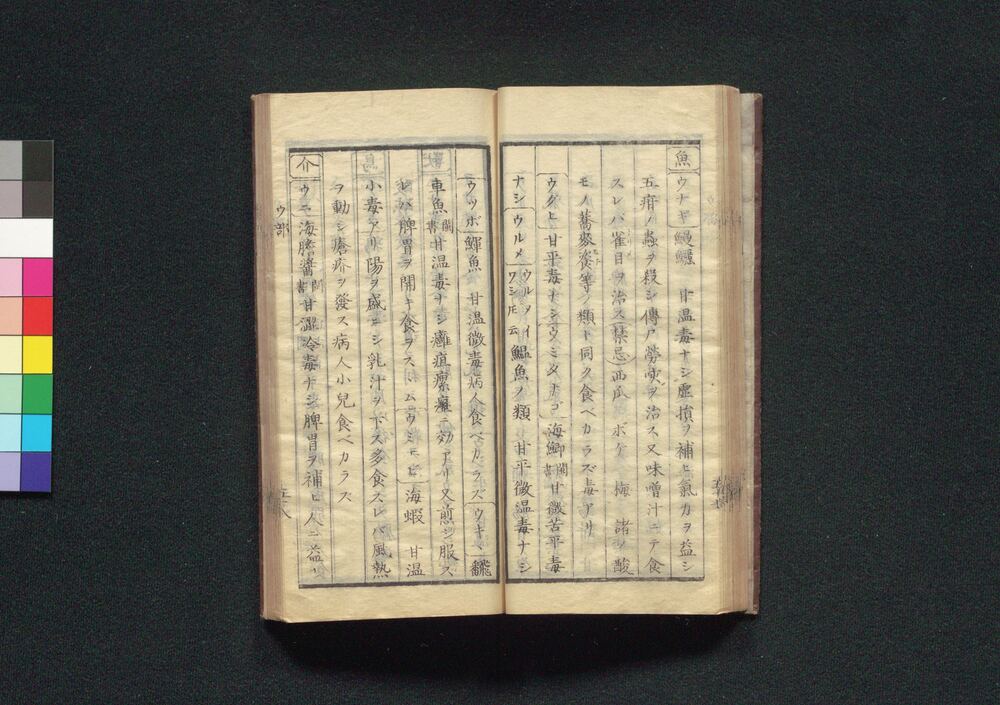 魚 ウナギ 鰻鱺 甘温毒ナシ虚損ヲ補ヒ氣力ヲ益シ
五疳ノ蟲ヲ殺シ傳尸勞瘵ヲ治ス又味噌汁ニテ食
スレバ雀目ヲ治ス禁忌 西瓜 ボケ 梅 諸ノ酸
モノ蕎麥 等ノ類ト同ク食ベカラズ毒アリ
ウグヒ 甘平毒ナシ ウミタナゴ 海鯽 閩書 甘微苦平毒
ナシ ウルメ ウルメイワシ圧云 鰮魚ノ類 甘平微温毒ナシ
ウツボ 鯶魚 甘温微毒病人食ベカラズ ウキヽ 飜
車魚 閩書 甘温毒ナシ癰疽瘰癧ニ効アリ又煎シ服ス
レバ脾胃ヲ開キ食ヲスヽム ウミエビ 海蝦 甘温
小毒アリ陽ヲ盛ニシ乳汁ヲ下ス多食スレバ風熱
ヲ動シ瘡疥ヲ發ス病人小兒食ベカラズ
介 ウニ 海膽醬 閩書 甘澀冷毒ナシ脾胃ヲ補ヒ人ニ益アリ
ウ部